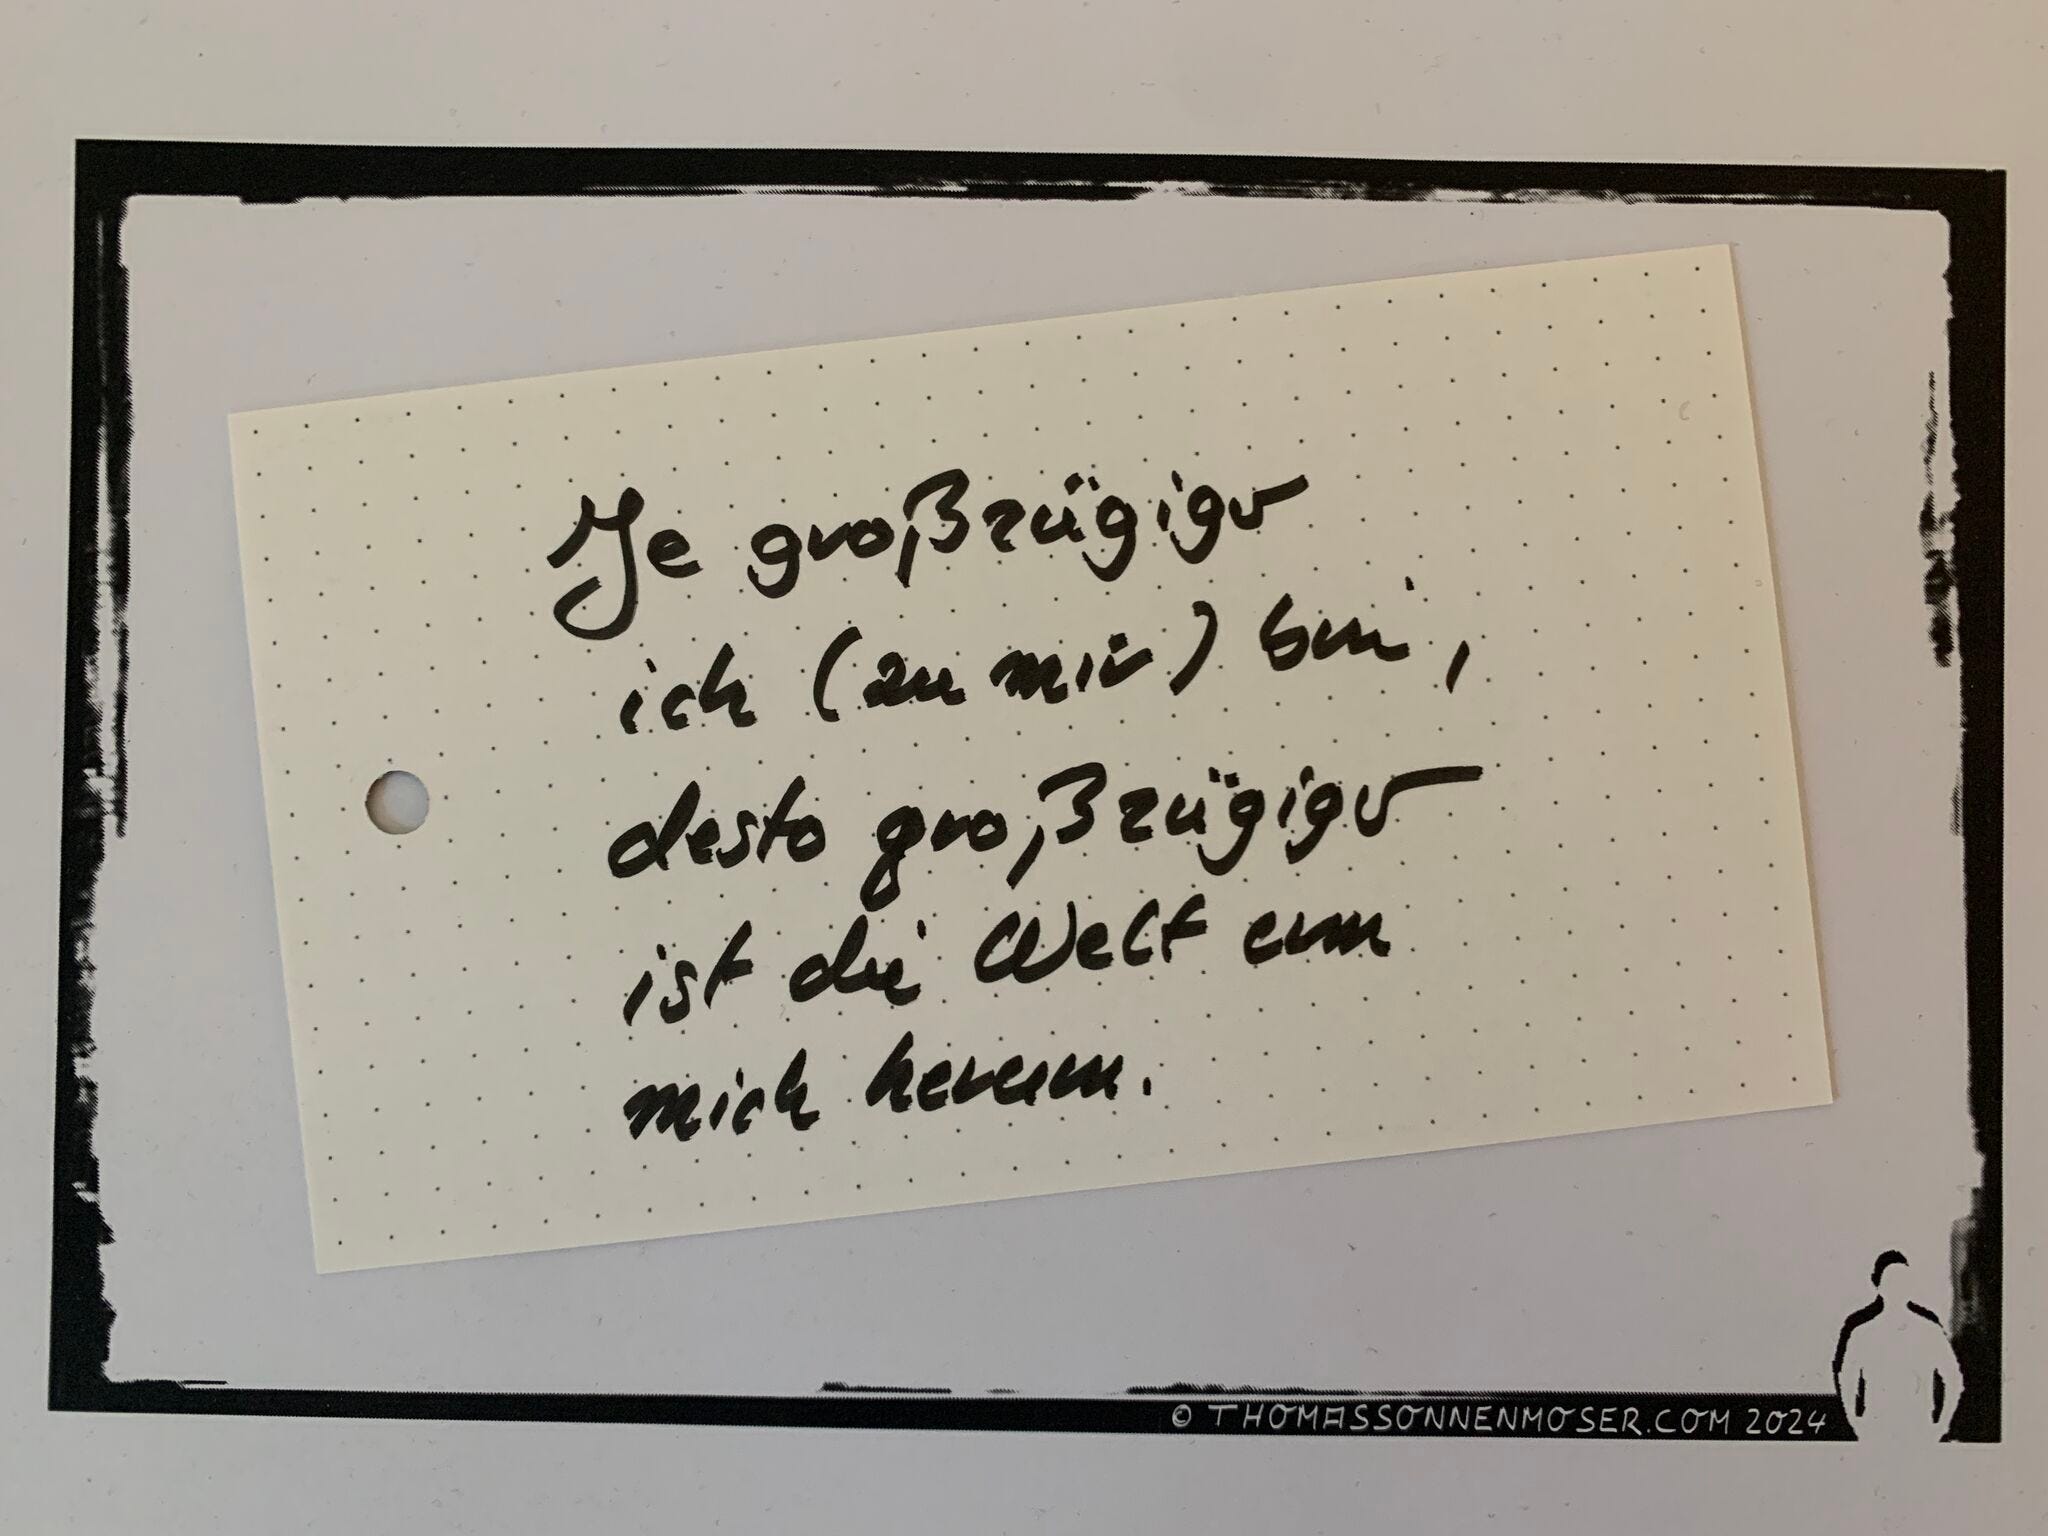 Je großzügiger
ich (zu mir) bin,
desto großzügiger
ist die Welt um
mich herum.
© THOMASSONNENMOSER.COM 2024